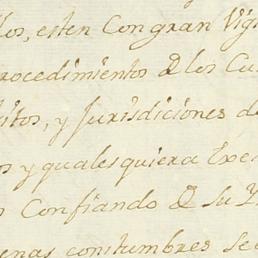 los, esten Con gran Vigi
rocedimientos de los Cu
itos, y Jurisdiciones de
os y quales quiera Exe
Confiando de su
enas constumbres se